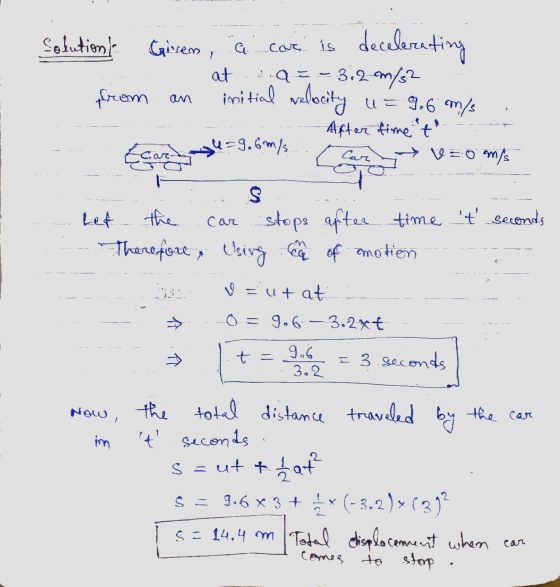 Solution:- Given, a car is decelerating
at a = - 3.2 m/s2
from an initial velocity u = 9.6 m/s.
After time 't'
Car u = 9.6 m/s Car v = 0 m/s
S
Let the car stops after time 't' seconds
Therefore, Using Eqn of motion
v = u + at
⇒ 0 = 9.6 - 3.2×t
⇒ t = 9.6/3.2 = 3 seconds
Now, the total distance traveled by the car
in 't' seconds.
s = ut + 1/2 at²
s = 9.6 × 3 + 1/2 × (-3.2) × (3)²
s = 14.4 m Total displacement when car
comes to stop.